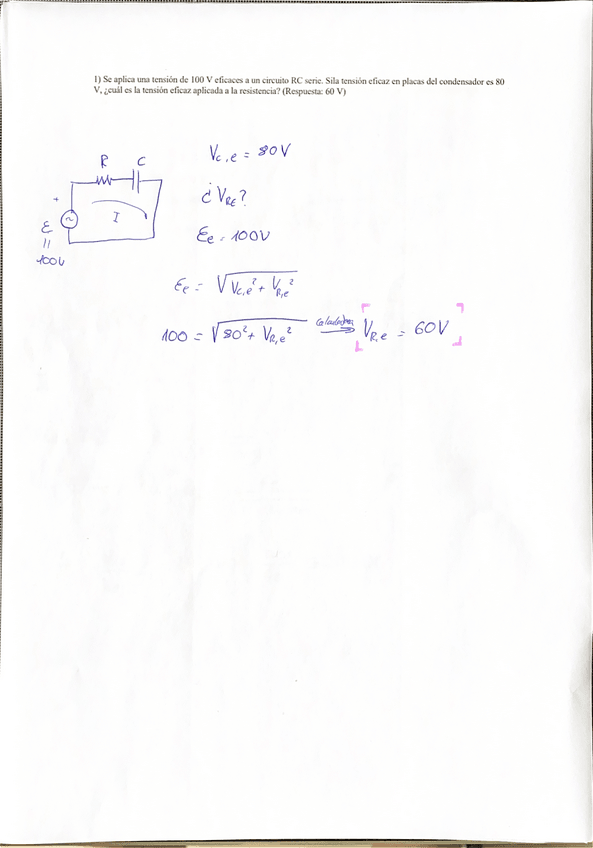 1) Se aplica una tensión de 100 V eficaces a un circuito RC serie. Sila tensión eficaz en placas del condensador es 80
V, ¿cuál es la tensión eficaz aplicada a la resistencia? (Respuesta: 60 V)
V_{C,e} = 80V
R C
¿V_{RE}?
+
~ I
ε
11
100V
ε_e = 100V
ε_e = √(V_{C,e}² + V_{R,e}²)
100 = √(80² + V_{R,e}²) calculadora ⟹ V_{R,e} = 60V